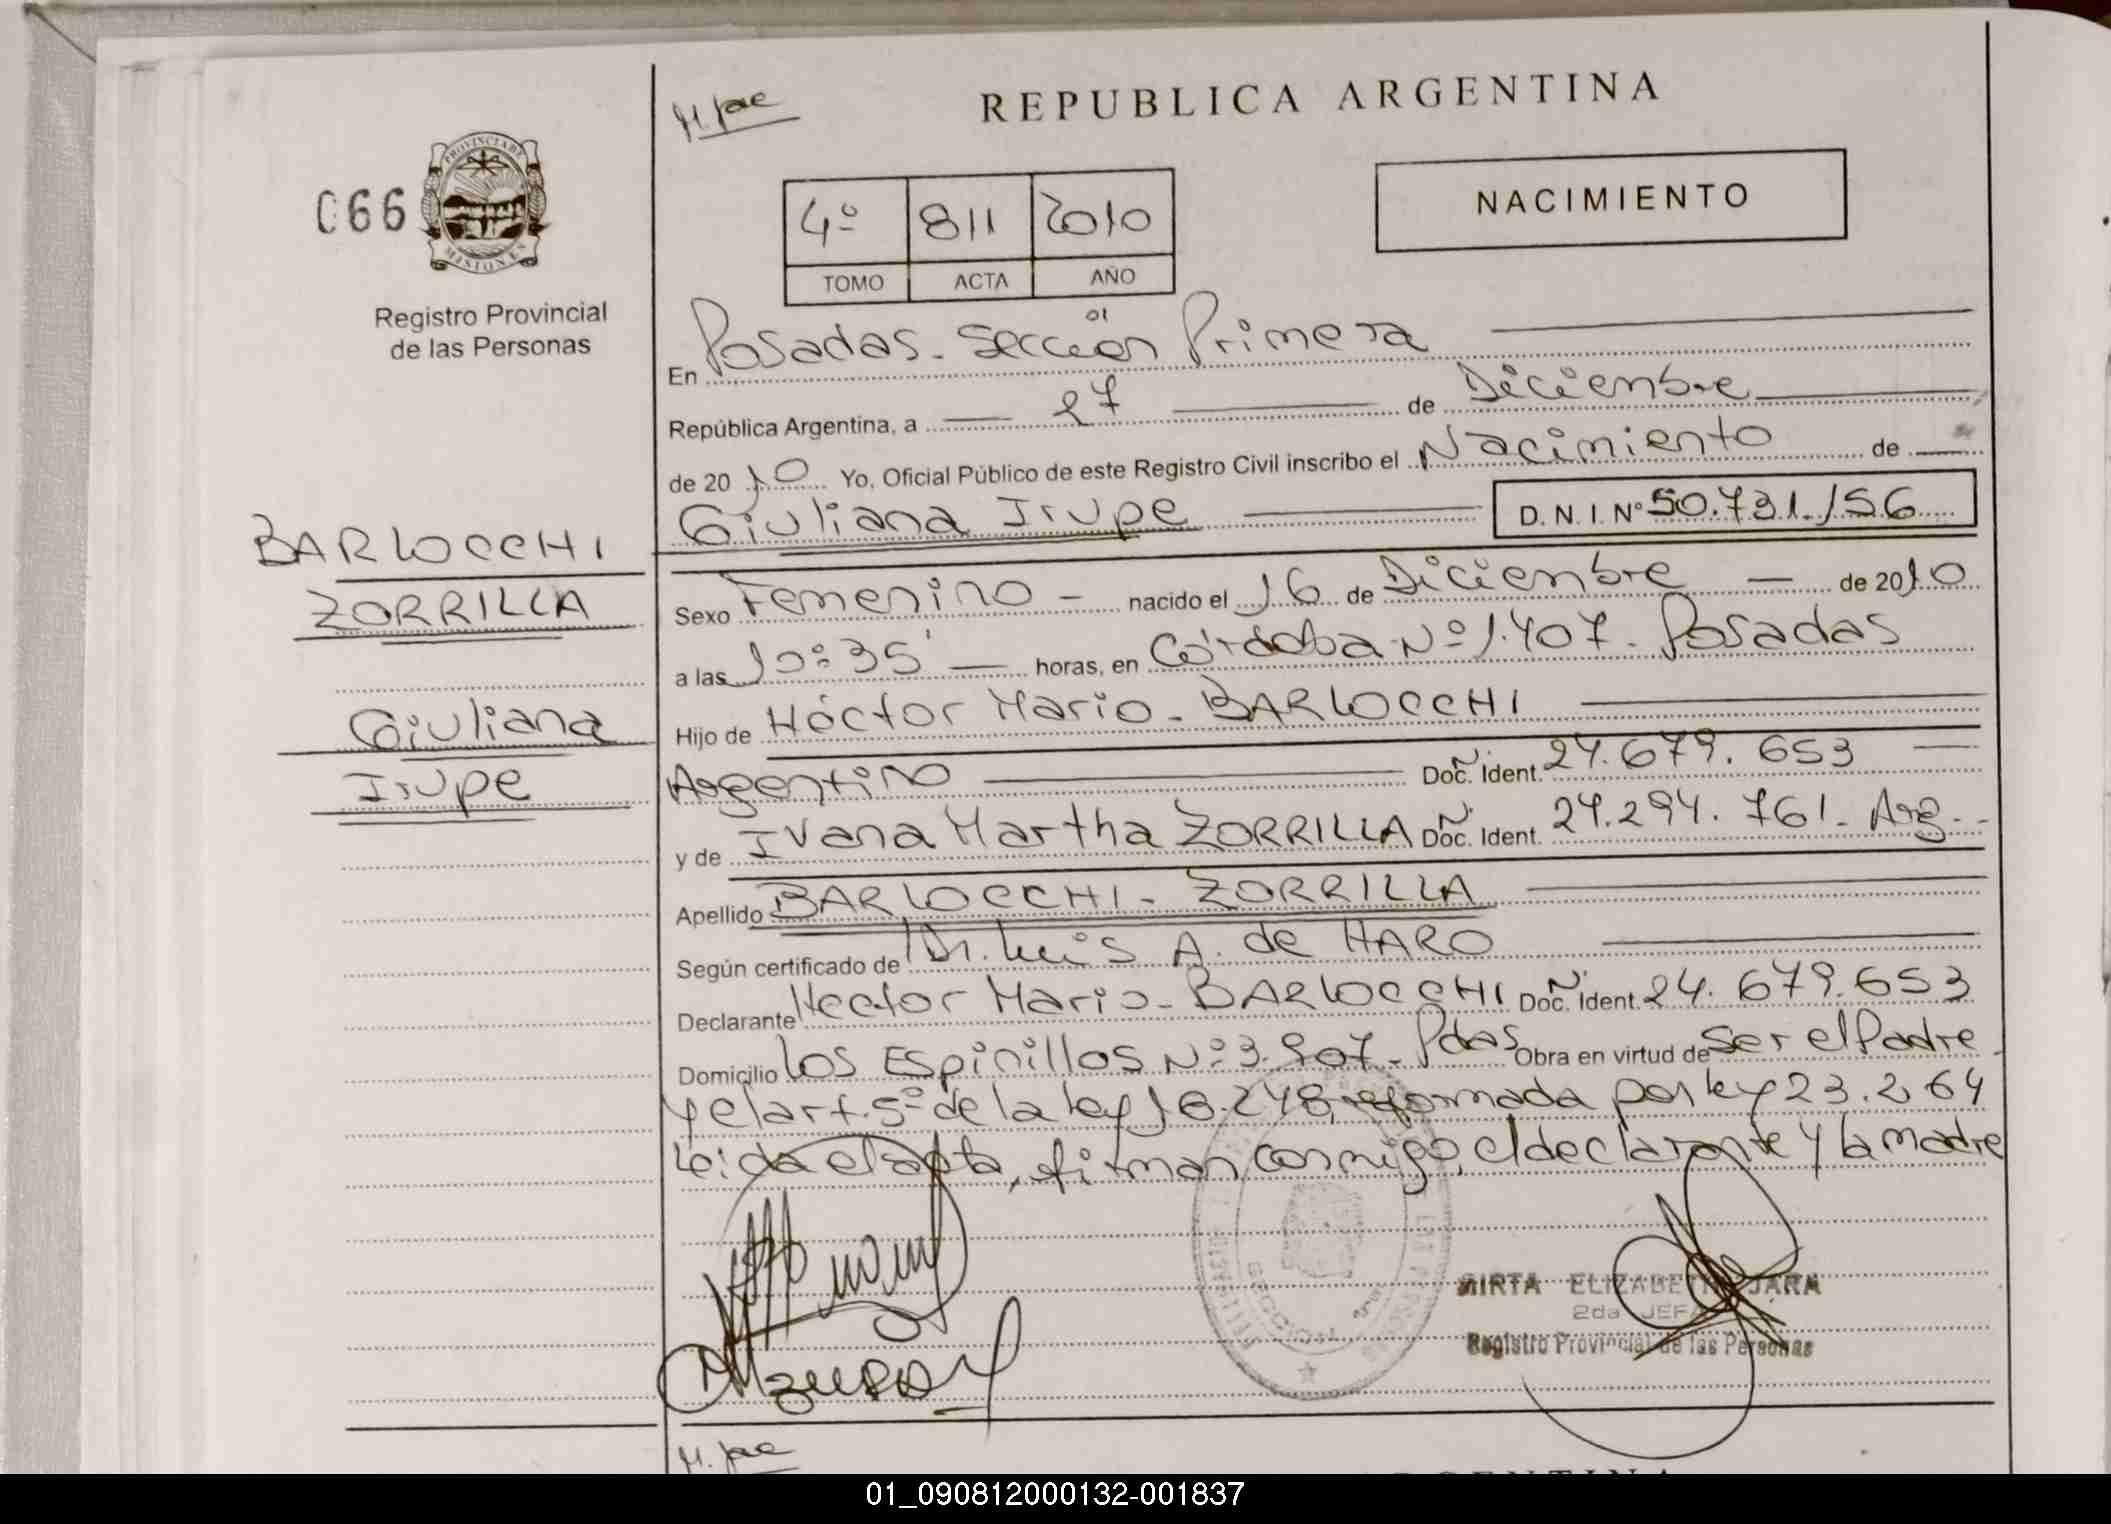 M. Jae
REPUBLICA ARGENTINA
066
PROVINCIA DE
MISIONES
4º 811 2010
TOMO ACTA AÑO
NACIMIENTO
Registro Provincial
de las Personas
01
En Posadas - Sección Primera
República Argentina, a 27 de Diciembre
de 2010 Yo, Oficial Público de este Registro Civil inscribo el Nacimiento de
Giuliana Irupe D.N.I. Nº 50.731.156
BARLOCCHI
ZORRILLA
Giuliana
Irupe
Sexo Femenino - nacido el 16 de Diciembre - de 2010
a las 10:35' horas, en Córdoba Nº 1.407 - Posadas
Hijo de Héctor Mario - BARLOCCHI
Argentino Doc. Ident. 24.679.653
y de Ivana Martha ZORRILLA Doc. Ident. 24.294.761 - Arg.
Apellido BARLOCCHI - ZORRILLA
Según certificado de Dr. Luis A. de HARO
Declarante Hector Mario - BARLOCCHI Doc. Ident. 24.679.653
Domicilio Los Espinillos Nº 3.907 - Pdas Obra en virtud de ser el Padre
y el art. 5º de la ley 18.248, reformada por ley 23.264
Leida el acta, firman conmigo, el declarante y la madre
MIRTA ELIZABETH JARA
2da JEFA
Registro Provincial de las Personas
M. Jae
01_090812000132-001837